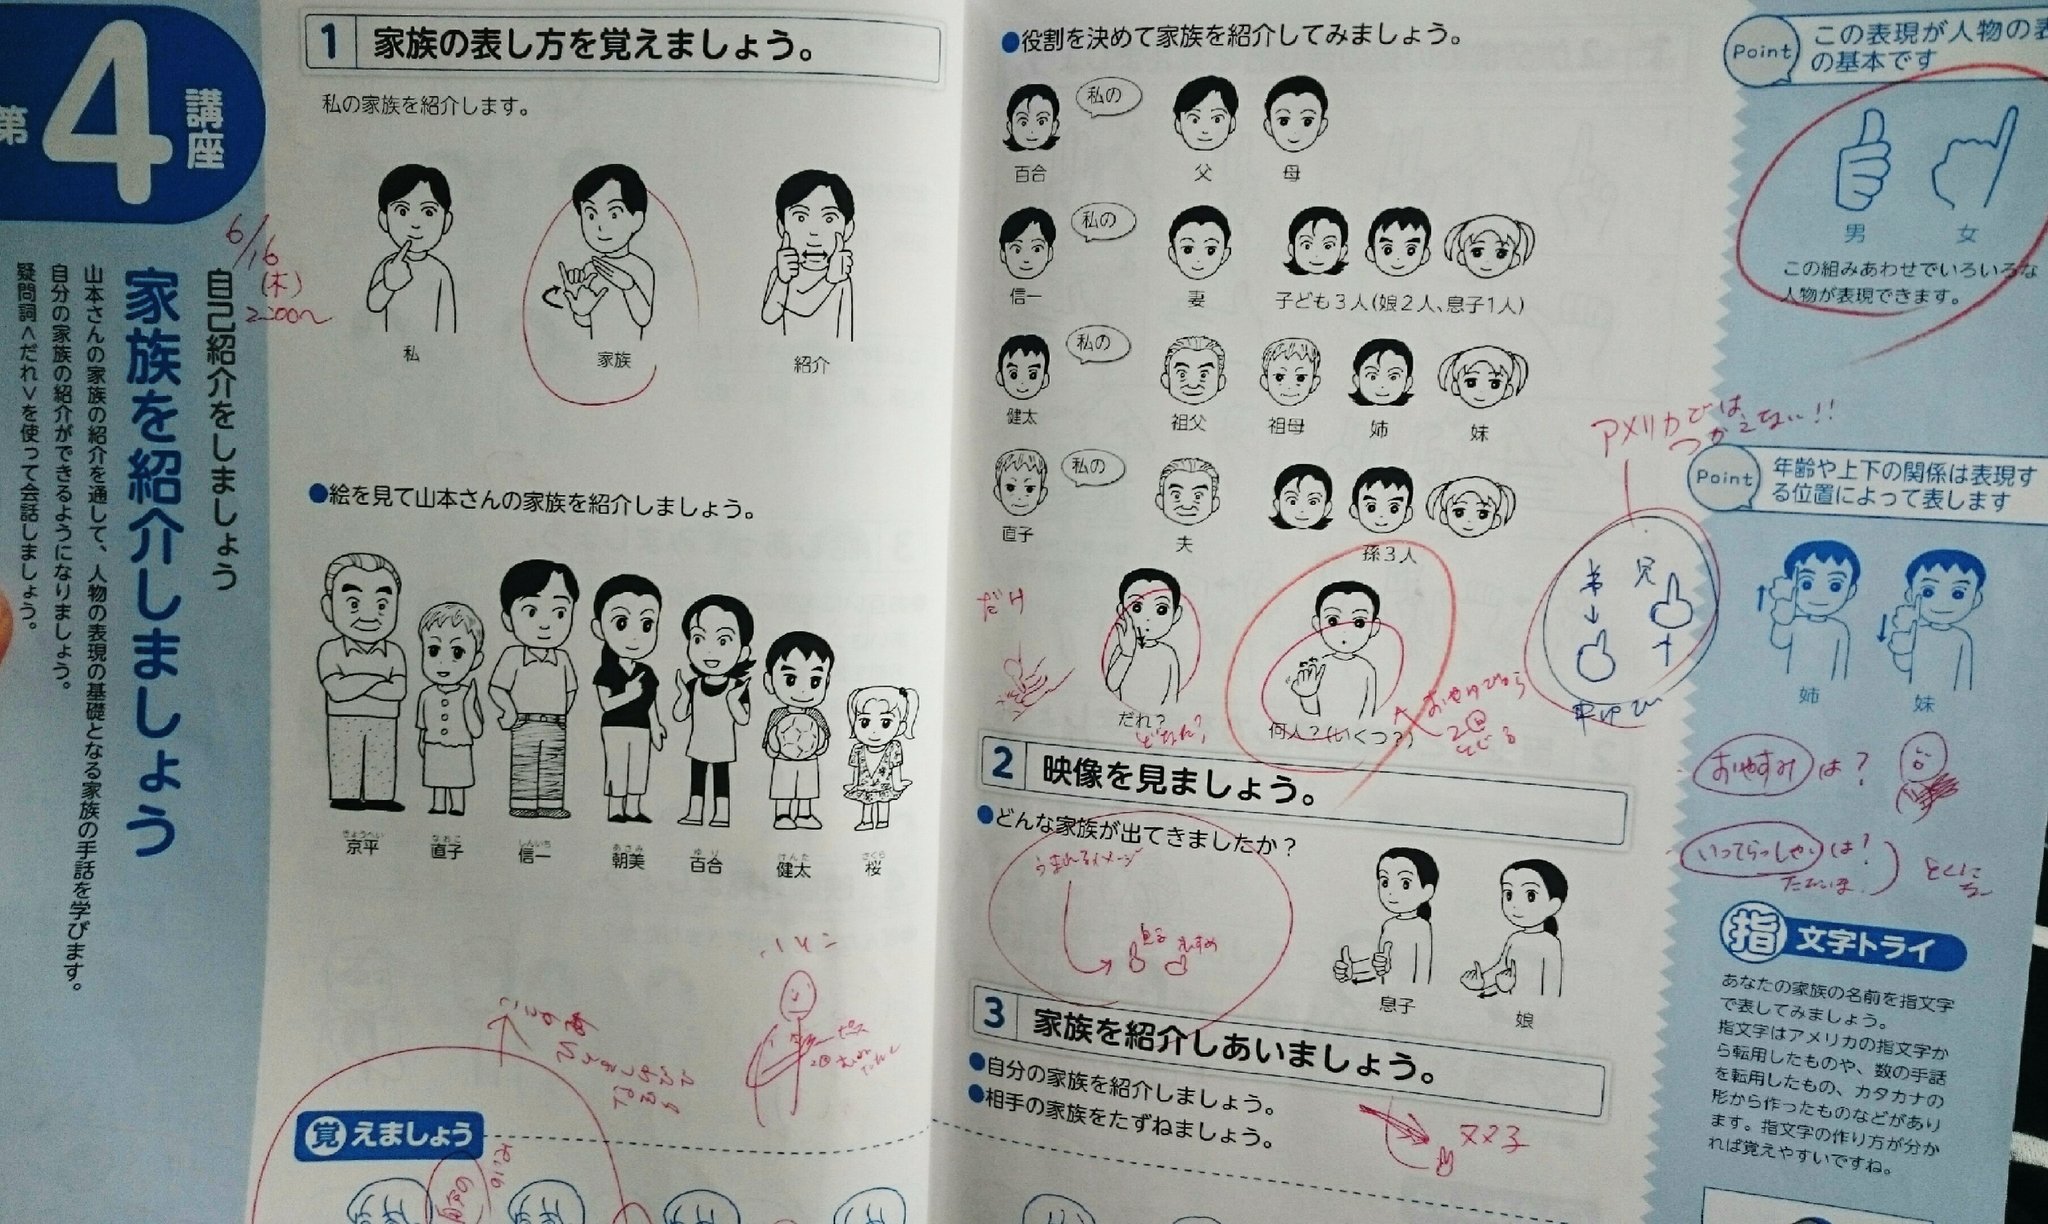 第4講座
自己紹介をしましょう
家族を紹介しましょう
山本さんの家族の紹介を通して、人物の表現の基礎となる家族の手話を学びます。
自分の家族の紹介ができるようになりましょう。
疑問詞<だれ>を使って会話しましょう。
6/16
(木)
1 家族の表し方を覚えましょう。
私の家族を紹介します。
私
家族
紹介
●絵を見て山本さんの家族を紹介しましょう。
きょうへい なおこ しんいち あさみ ゆり けんた さくら
京平 直子 信一 朝美 百合 健太 桜
いとこ
覚えましょう
●役割を決めて家族を紹介してみましょう。
私の
百合 父 母
私の
信一 妻 子ども3人(娘2人、息子1人)
私の
健太 祖父 祖母 姉 妹
私の
直子 夫 孫3人
だれ?
何人?(いくつ?)
2 映像を見ましょう。
●どんな家族が出てきましたか?
うまれるイメージ
息子 むすめ
息子
娘
3 家族を紹介しあいましょう。
●自分の家族を紹介しましょう。
●相手の家族をたずねましょう。
Point この表現が人物の表
の基本です
男 女
この組みあわせでいろいろな
人物が表現できます。
アメリカでは
つかえない!!
Point 年齢や上下の関係は表現す
る位置によって表します
弟 兄
姉 妹
おやすみは?
いってらっしゃいは?
指文字トライ
あなたの家族の名前を指文字
で表してみましょう。
指文字はアメリカの指文字か
ら転用したものや、数の手話
を転用したもの、カタカナの
形から作ったものなどがあり
ます。指文字の作り方が分か
れば覚えやすいですね。